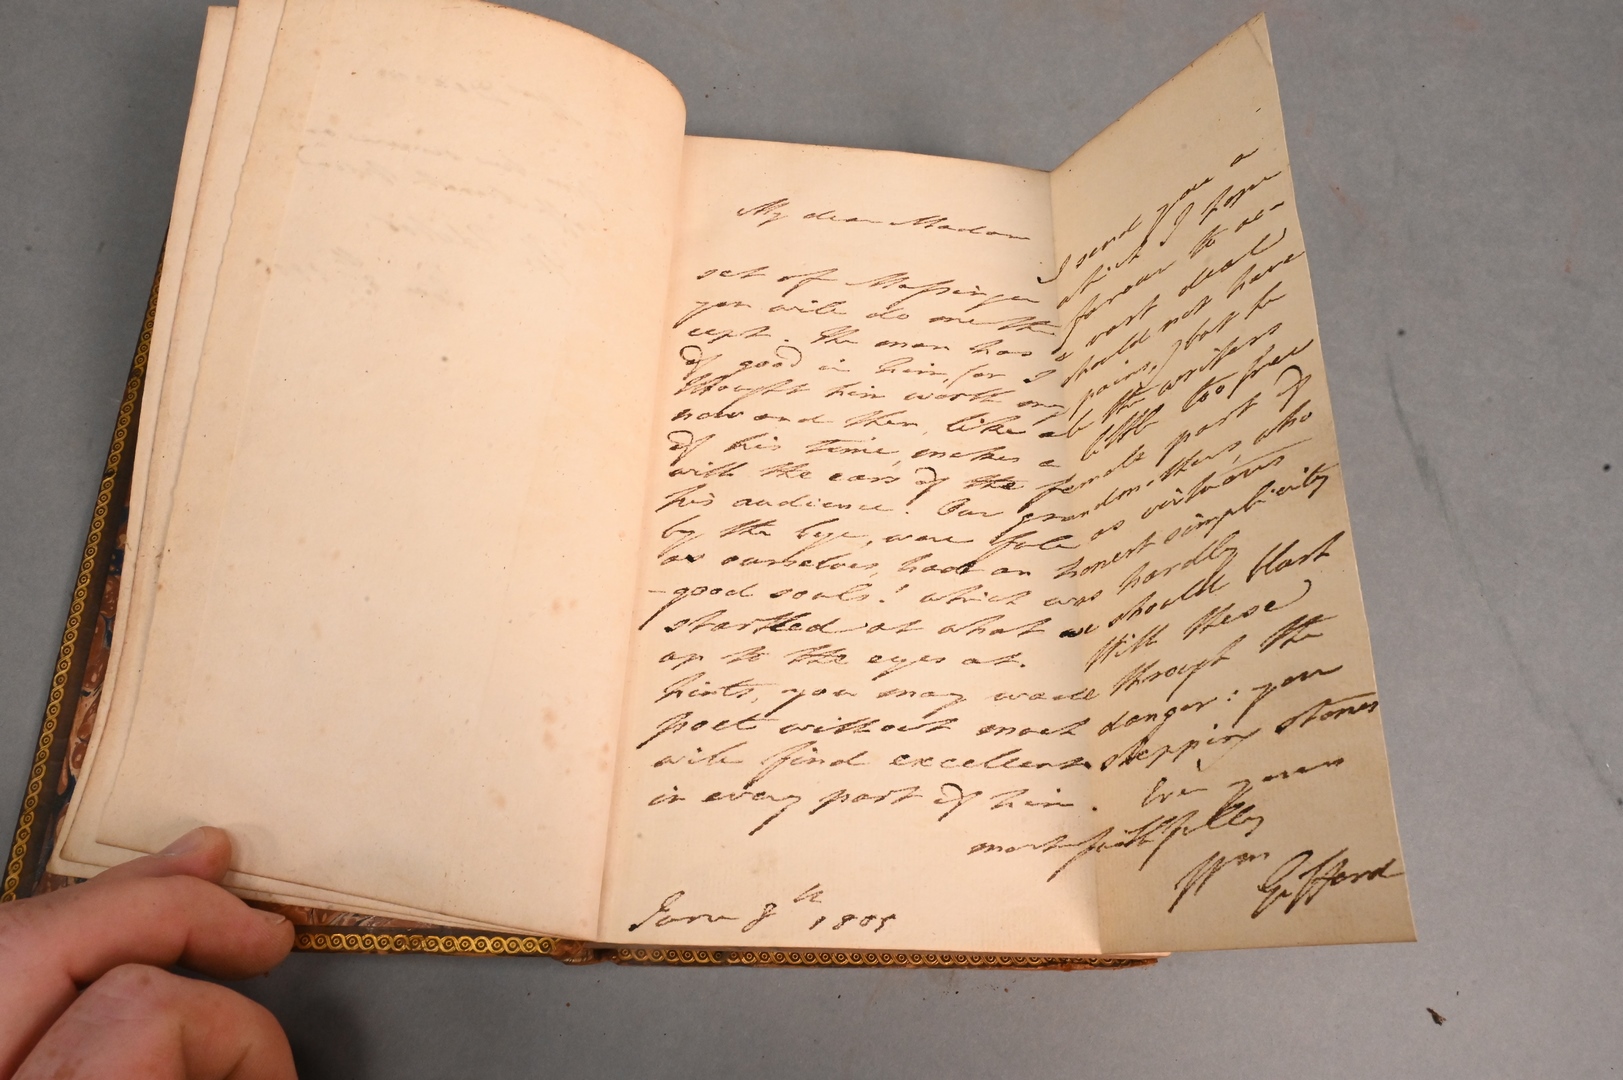 My dear Madam
I send you a
set of Massinger which I hope
you will do me the favour to ac-
cept. The man has a vast deal
of good in him, (or I should not have
thought him worth my pains,) but he
now and then, like all the writers
of his time, makes a little too free
with the ears of the female part of
his audience. Our grandmothers, who
by the bye, were full as virtuous
as ourselves, had an honest simplicity
-good souls! which was hardly
startled at what we should blush
up to the eyes at. With these
hints, you may wade through the
poet without much danger: you
will find excellent stepping stones
in every part of him. Ever yours
most faithfully
Wm Gifford
June 8th 1805